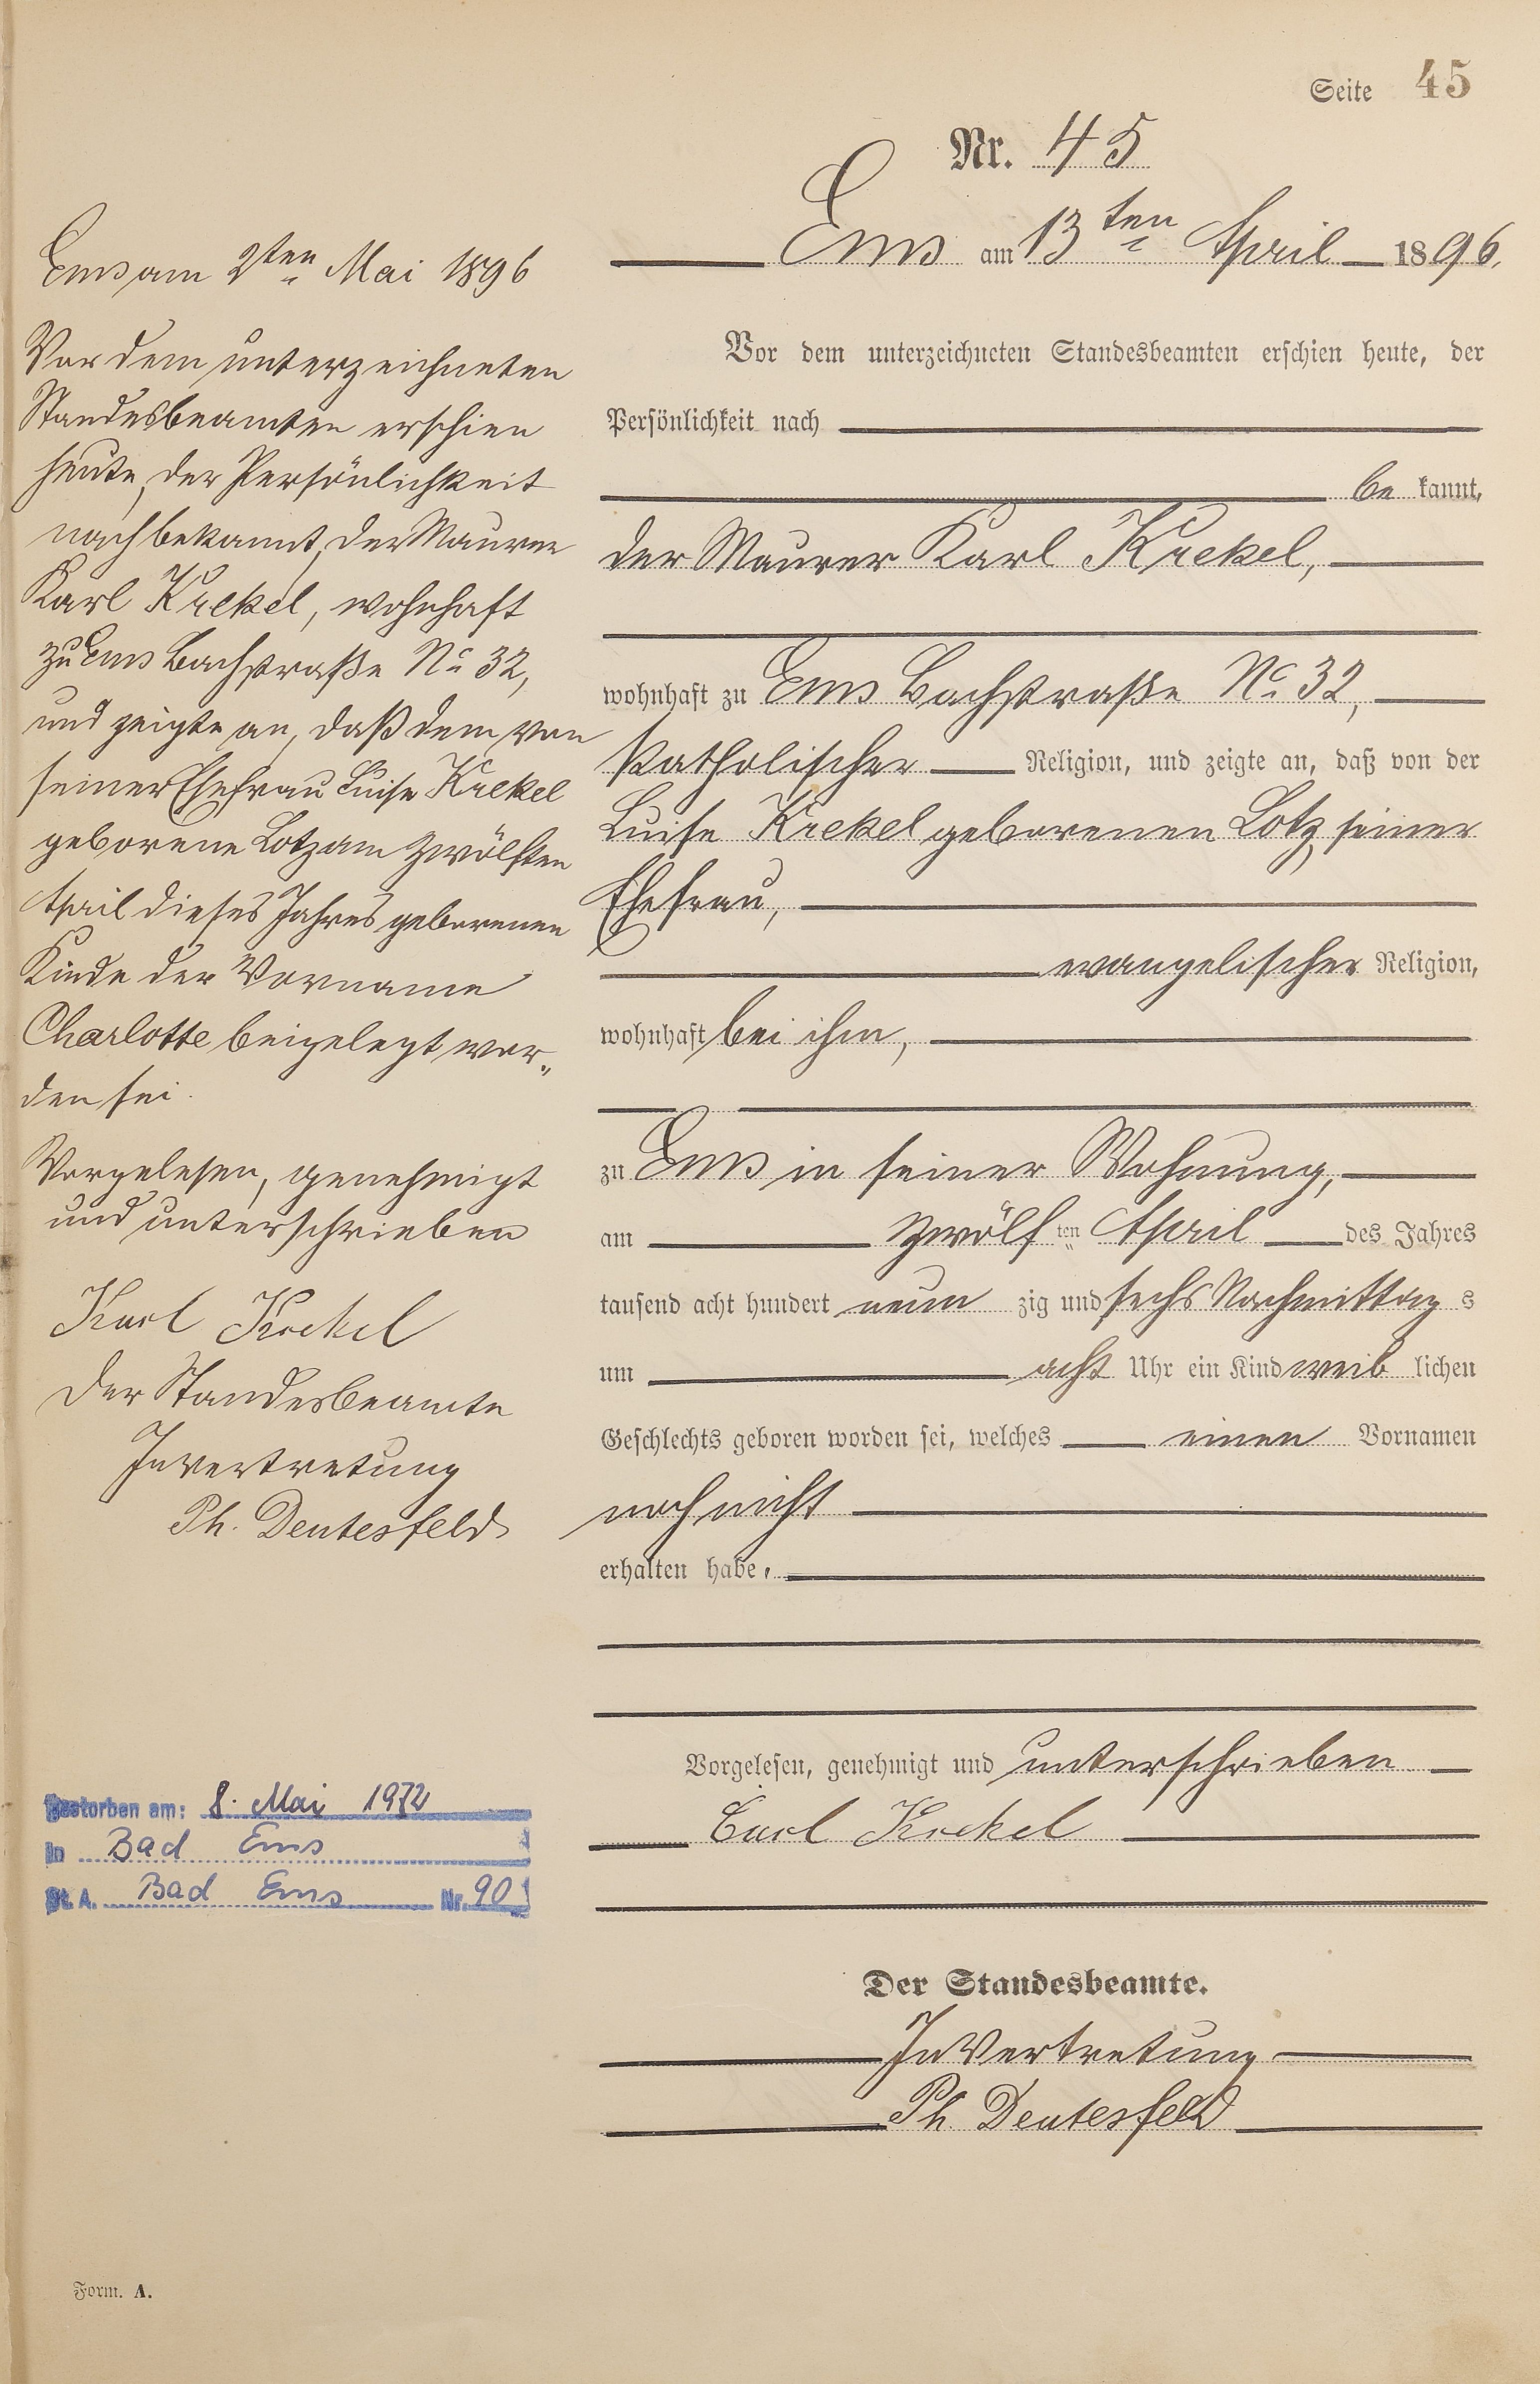 Seite 45
Nr. 45
Ems am 13ten April 1896.
Vor dem unterzeichneten Standesbeamten erschien heute, der
Persönlichkeit nach
be kannt,
der Maurer Karl Krekel,
wohnhaft zu Ems Bachstraße No 32,
katholischer Religion, und zeigte an, daß von der
Luise Krekel geborenen Lotz, seiner
Ehefrau,
evangelischer Religion,
wohnhaft bei ihm,
zu Ems in seiner Wohnung,
am zwölf ten April des Jahres
tausend acht hundert neun zig und sechs Nachmittag s
um acht Uhr ein Kind weib lichen
Geschlechts geboren worden sei, welches einen Vornamen
noch nicht
erhalten habe.
Vorgelesen, genehmigt und unterschrieben
Carl Krekel
Der Standesbeamte.
In Vertretung
Ph. Deutesfeld
Ems am 2ten Mai 1896
Vor dem unterzeichneten
Standesbeamten erschien
heute, der Persönlichkeit
nach bekannt, der Maurer
Karl Krekel, wohnhaft
zu Ems Bachstraße No 32,
und zeigte an, daß dem von
seiner Ehefrau Luise Krekel
geborene Lotz am zwölften
April dieses Jahres geborenen
Kinde der Vorname
Charlotte beigelegt wor„
den sei.
Vorgelesen, genehmigt
und unterschrieben
Karl Krekel
Der Standesbeamte
In Vertretung
Ph. Deutesfeld
Gestorben am: 8. Mai 1972
in Bad Ems
St. A. Bad Ems Nr. 90
Form. A.